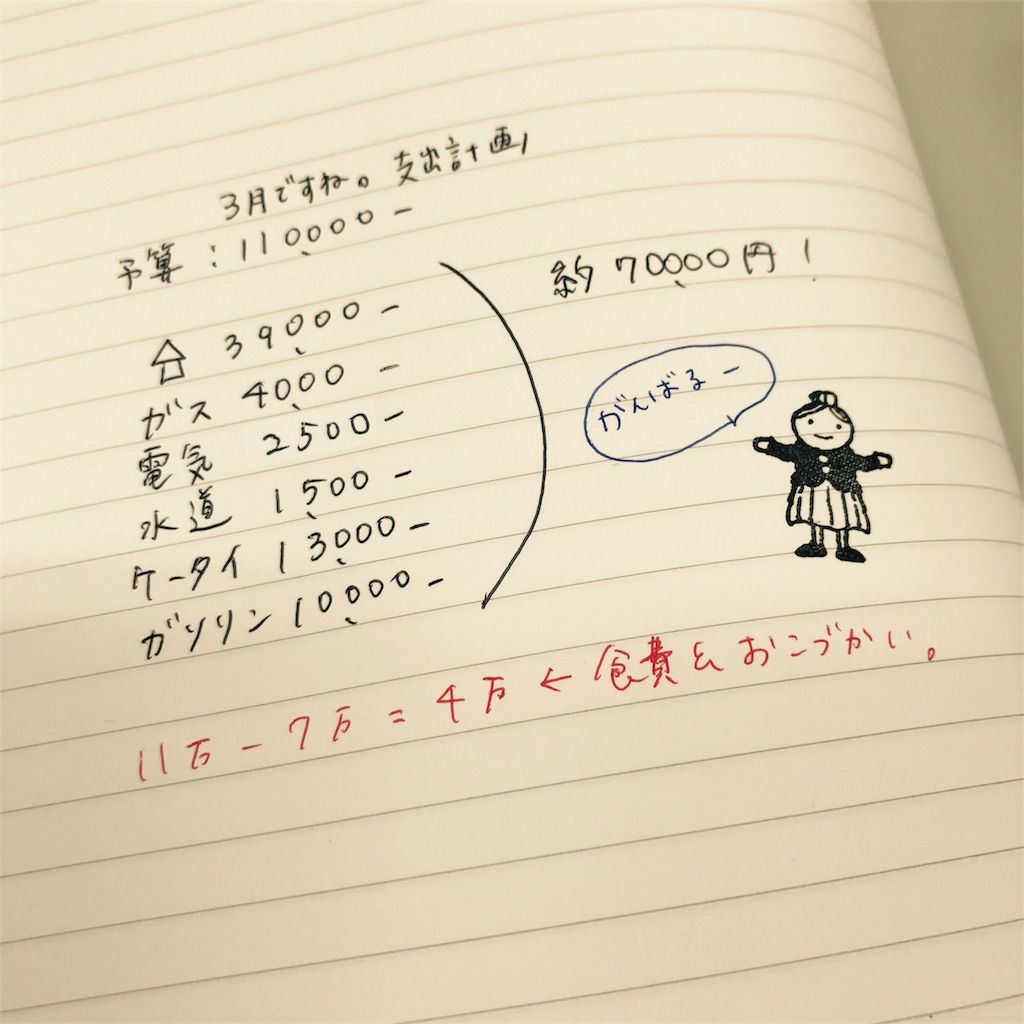 3月ですね。支出計画
予算:110,000-
39,000-
ガス 4,000-
電気 2500-
水道 1,500-
ケータイ 13,000-
ガソリン 10,000-
約70,000円!
がんばるー
11万-7万=4万←食費&おこづかい。